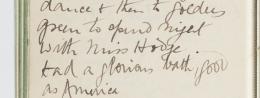 dance & then to Golders
green to spend night
with Miss Hodge.
Had a glorious bath, good
as America